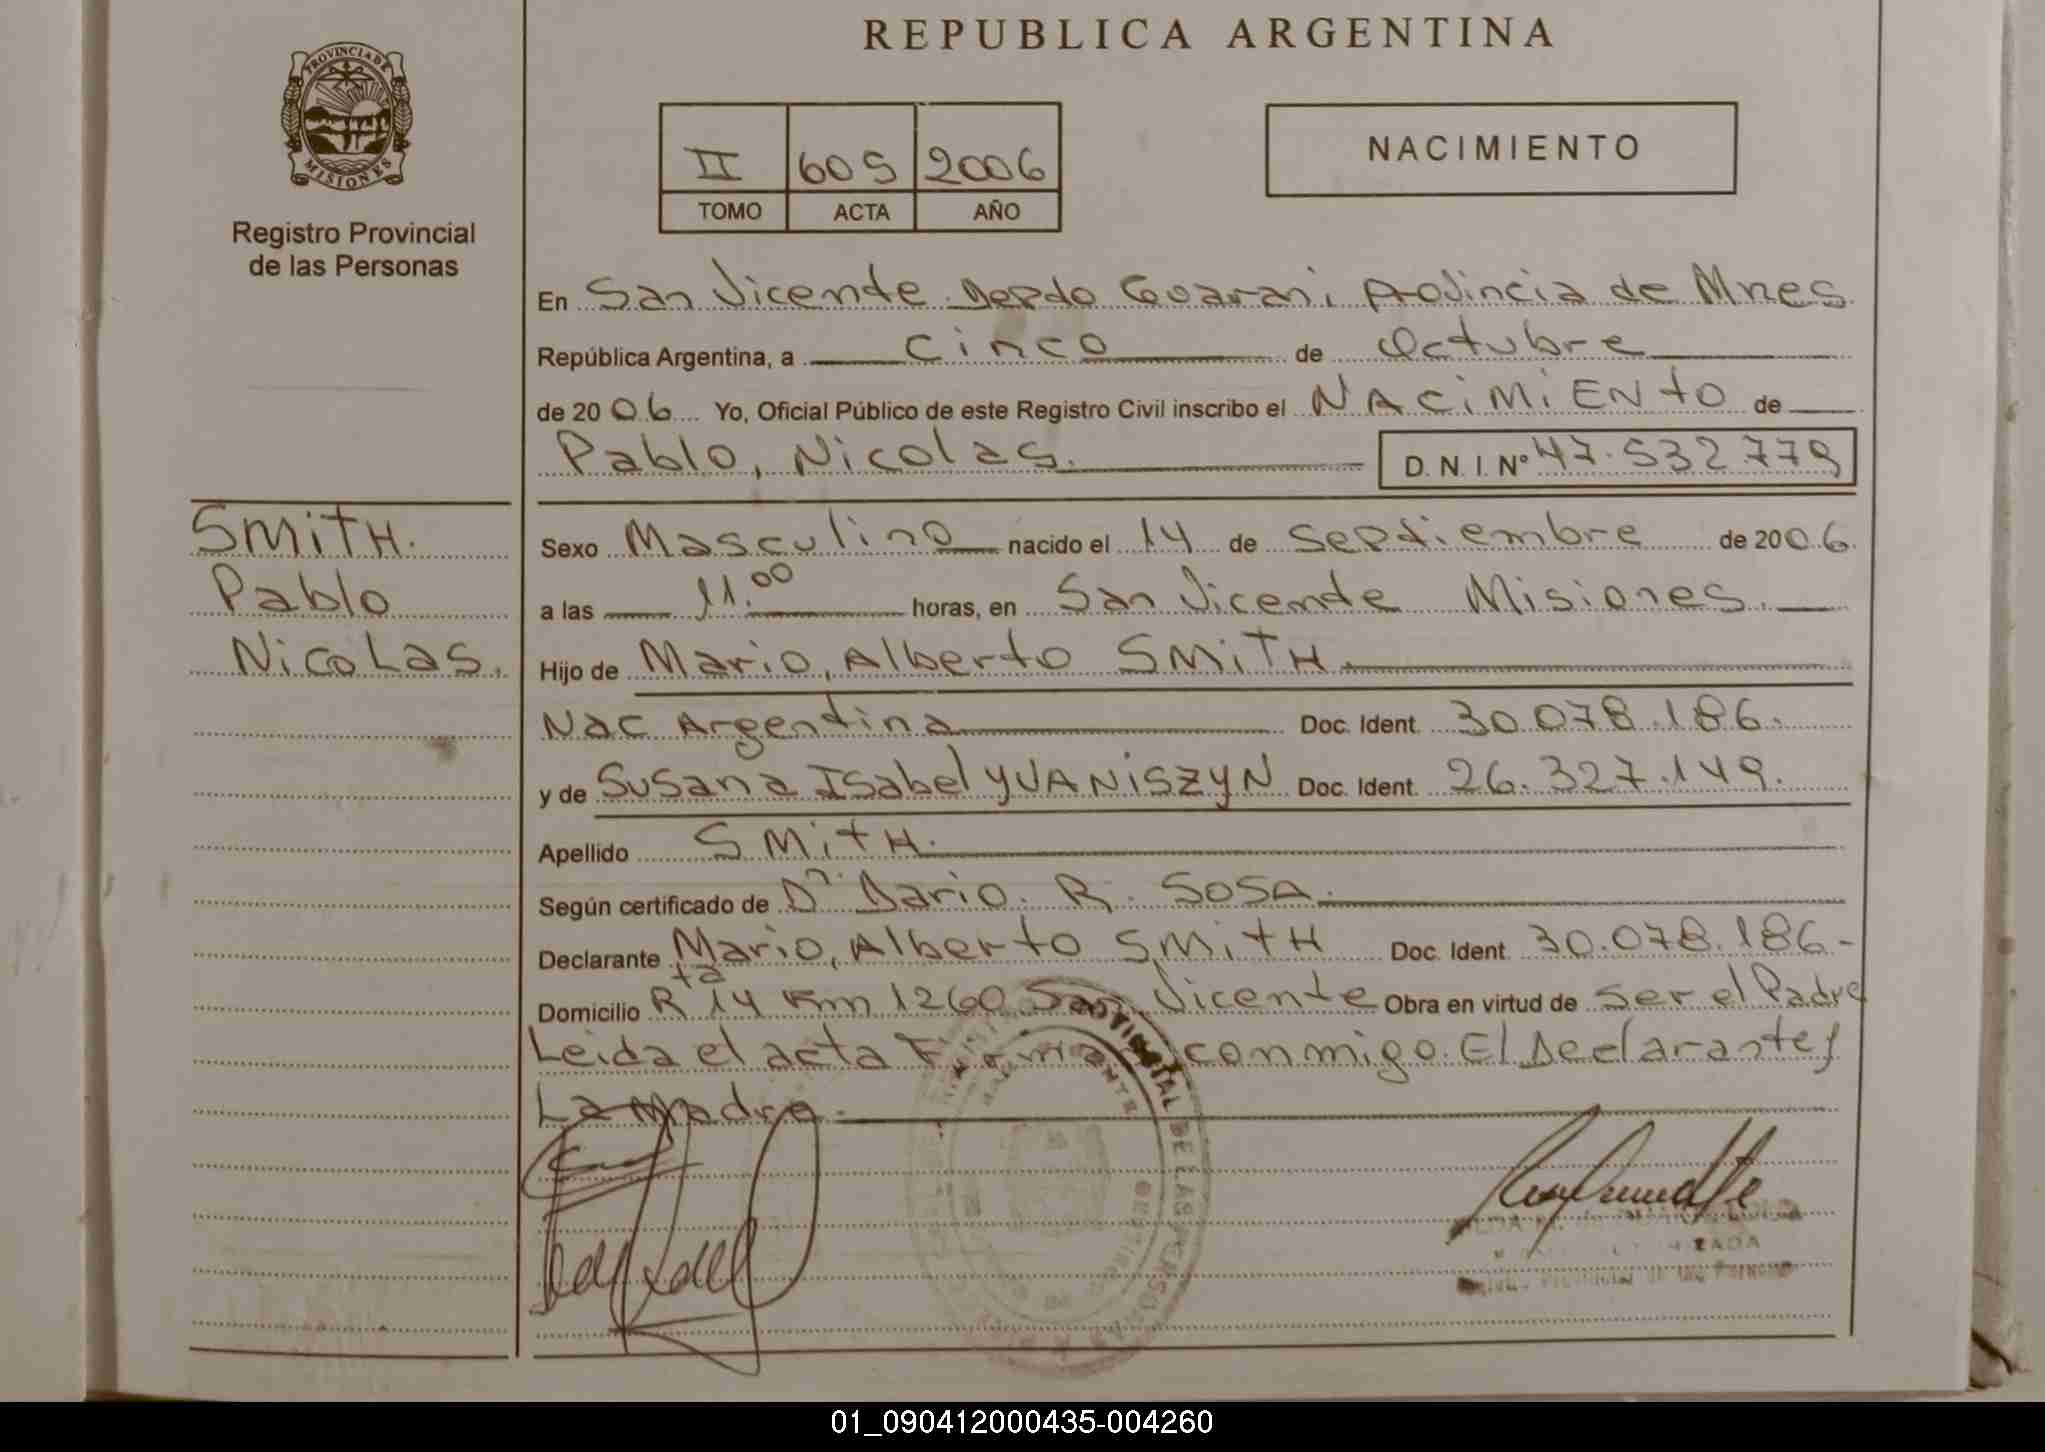 REPUBLICA ARGENTINA
PROVINCIA DE
MISIONES
Registro Provincial
de las Personas
II 605 2006
TOMO ACTA AÑO
NACIMIENTO
En San Vicente Depdo Guarani, Provincia de Mnes
República Argentina, a cinco de Octubre
de 2006 Yo, Oficial Público de este Registro Civil inscribo el NACIMIENTO de
Pablo, Nicolas. D. N. I. Nº 47.532.779
SMITH.
Pablo
Nicolas.
Sexo Masculino nacido el 14 de Septiembre de 2006.
a las 11.00 horas, en San Vicente Misiones.
Hijo de Mario, Alberto SMITH.
Nac Argentina Doc. Ident. 30.078.186.
y de Susana Isabel YVANISZYN Doc. Ident. 26.327.149.
Apellido SMITH.
Según certificado de Dr Dario. R. SOSA.
Declarante Mario, Alberto SMITH Doc. Ident. 30.078.186.-
Domicilio Rta 14 Km 1260 San Vicente Obra en virtud de ser el Padre
Leida el acta Firman conmigo. El Declarante y
La Madre.
PROVINCIAL DE LAS PERSONAS
01_090412000435-004260